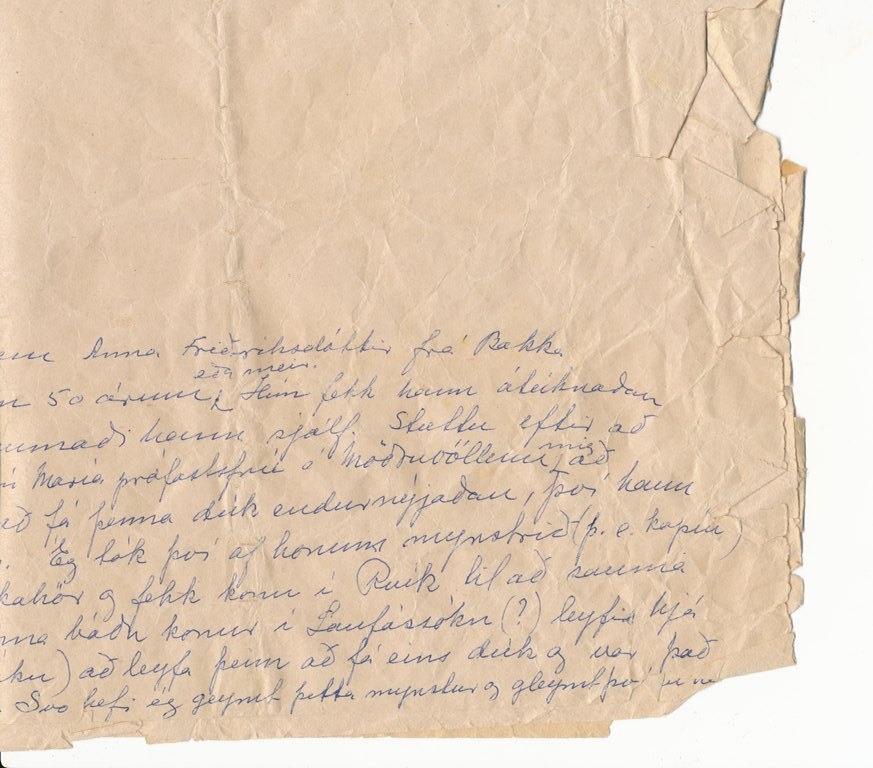 Anna Friðriksdóttir frá Bakka
eða meir.
50 árum, Hún fekk hann áteiknaðan
saumaði hann sjálf. Stuttu eftir að
María prófastsfrú á Möðruvöllum mig að
að fá þenna dúk endurnýjaðan, því hann
Ég tók því af honum mynstrið (þ. e. kopíu)
og fekk konu í Rvík til að sauma
báðu konur í Laufássókn (?) leyfis hjá
að leyfa þeim að fá eins dúk og var það
Svo hefi ég geymt þetta mynstur og gleymt því